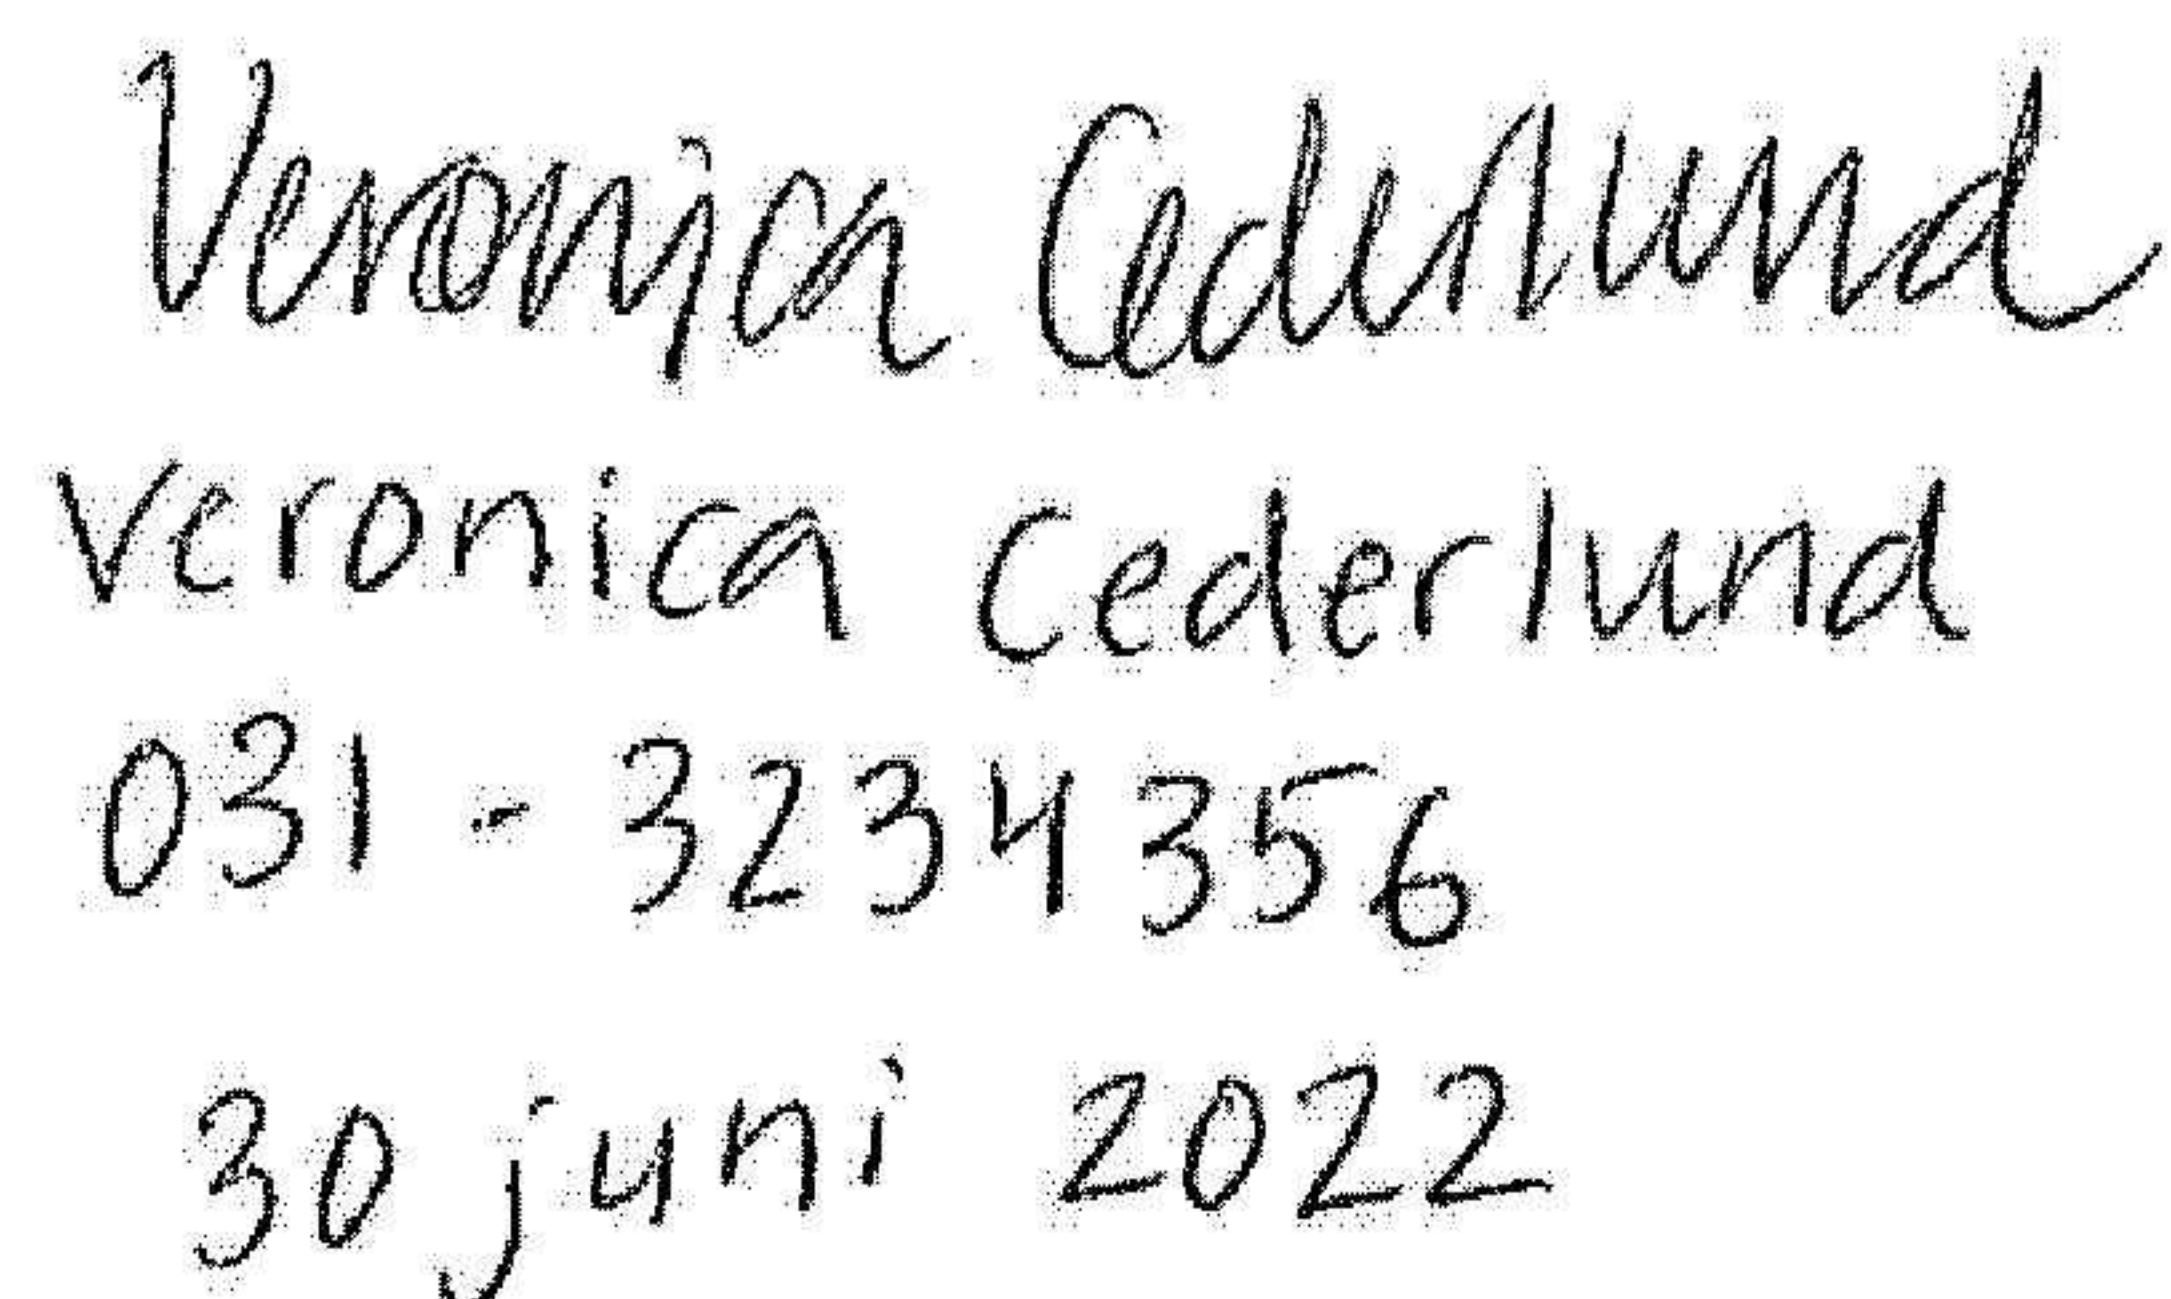 Veronica Cederlund
Veronica Cederlund
031 - 3234356
30 juni 2022